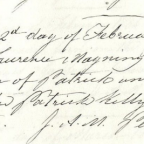 2nd day of Februa
Laurence Magning
of Patrick an
Patrick Kelly
J. A. M.